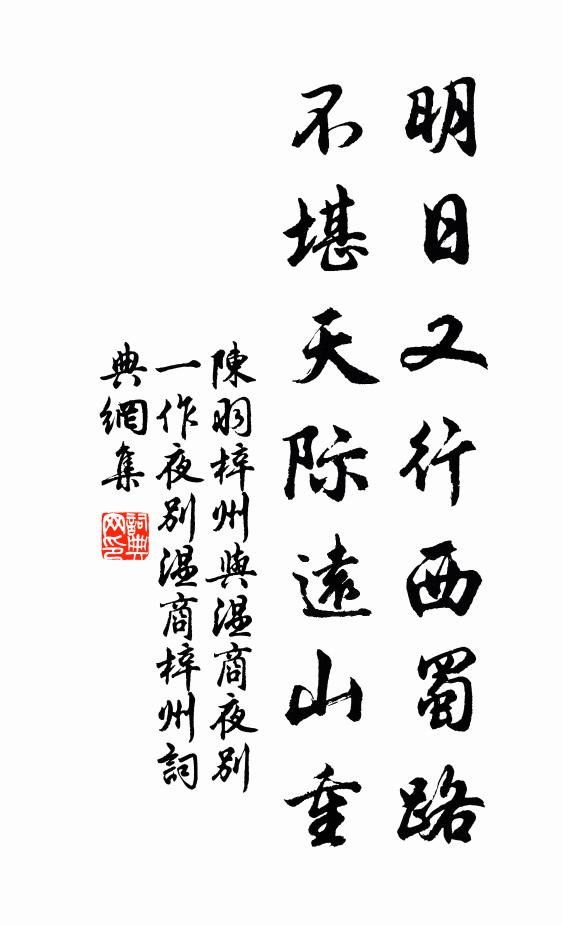 明日又行西蜀路
不堪天际遠山重
陳羽梓州與温商夜别
一作夜别温商梓州詞
典網集
詞典網印